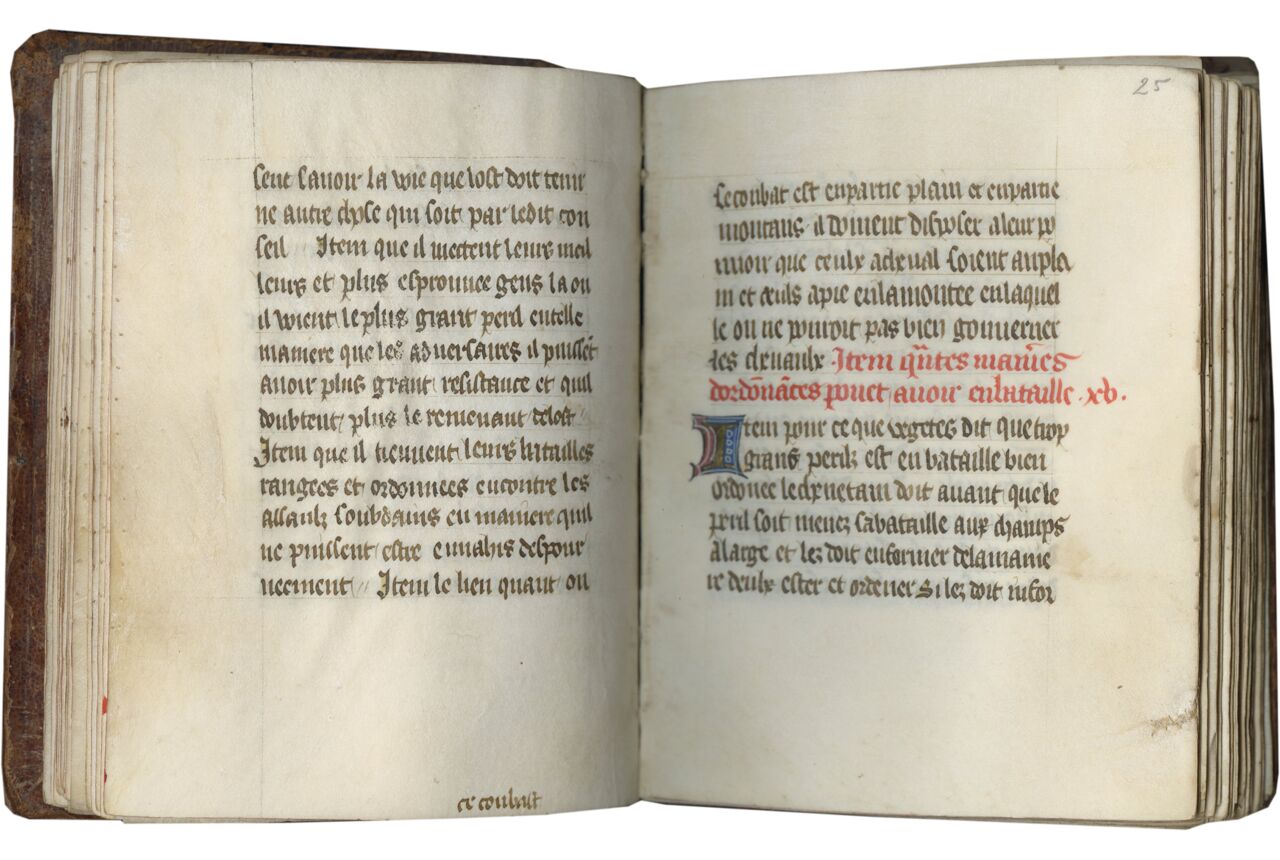 sent sauoir la voie que lost doit tenir
ne autre chose qui soit par ledit con
seil Item que il mettent leurs meil
leurs et plus esprouuee gens la ou
il voient le plus grant peril en telle
maniere que les aduersaires il puissēt
auoir plus grant resistance et quil
doubtent plus le remenant de lost
Item que il tieunent leurs batailles
rangees et ordonnees encontre les
assaulz soubdains en maniere quil
ne puissent estre enuahis despour
ueement Item le lieu quant on
ce conbast
se conbat est en partie plain et en partie
montans il doiuent disposer a leur po
uuoir que ceulx a cheual soient au pla
in et ceuls a pie en la montee en laquel
le on ne pouroit pas bien gouuerner
les cheuaulx Item q̄ntes manieres
dordōnāces pouet auoir en bataille .xv.
Item pour ce que vegetes dit que trop
grans perilz est en bataille bien
ordonee le cheuetain doit auant que le
peril soit menez sa bataille aux champs
a large et lez doit enformer de la manie
re deulx ester et ordener Si lez doit
25